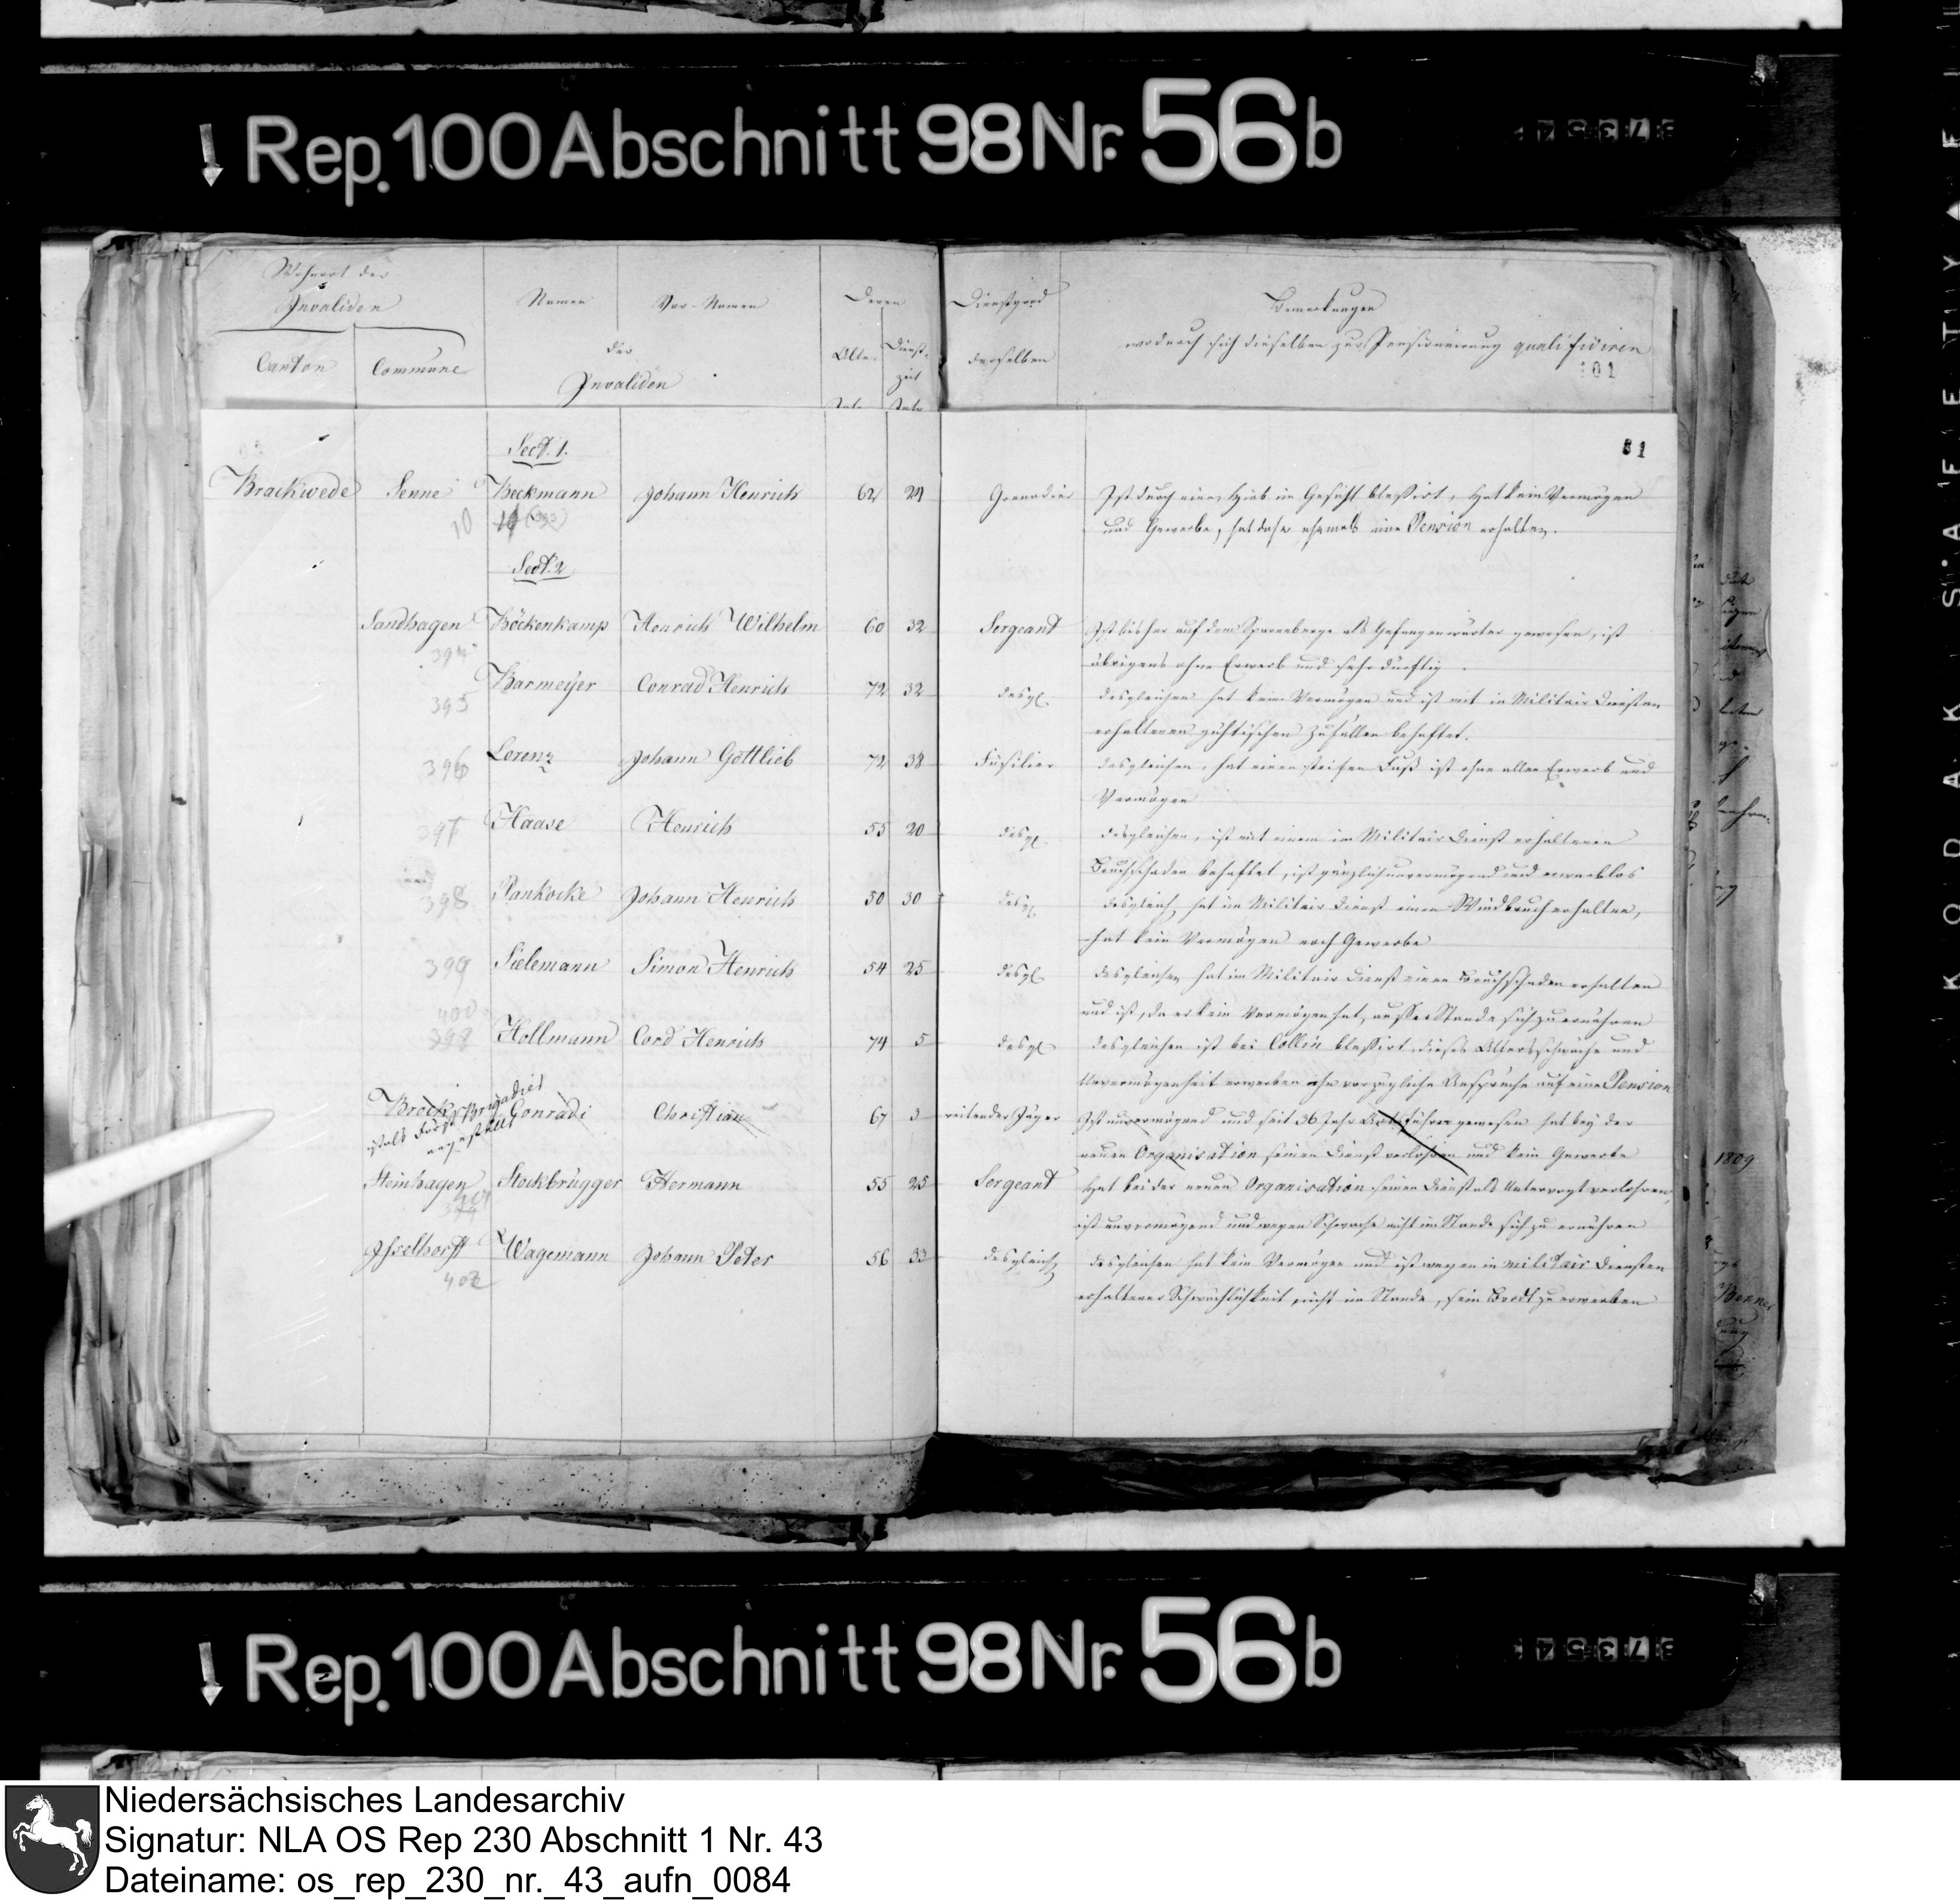 Rep. 100 Abschnitt 98 Nr. 56 b
Wohnort der
Invaliden
Namen
Vor-Namen
Deren
Dienstgrad
Bemerkungen
Canton
Commune
der
Invaliden
Alter
Dienst-
zeit
derselben
wodurch sich dieselben zur Pensionirung qualifiziren
101
81
Sect. 1.
Brackwede Senne Beckmann Johann Henrich 62 24 Grenadier Ist durch einen Hieb im Gesicht blessirt, hat kein Vermögen
10
und Gewerbe, hat daher ehemals eine Pension erhalten.
Sect. 2
Sandhagen Böckenkamp Henrich Wilhelm 60 32 Sergeant Ist bisher auf dem Sparenberge als Gefangenwärter gewesen, ist
394
übrigens ohne Erwerb und sehr dürftig.
Barmeyer Conrad Henrich 72 32 desgl. desgleichen hat kein Vermögen und ist mit in Militair Diensten
395
erhaltenen gichtischen Zufällen behaftet.
Lorenz Johann Gottlieb 72 38 Füsilier desgleichen, hat einen steifen Fuß ist ohne allen Erwerb und
396
Vermögen
Haase Henrich 55 20 desgl. desgleichen, ist mit einem im Militair Dienst erhaltenen
397
Bruchschaden behaftet, ist gänzlich unvermögend und erwerblos
Pankocke Johann Henrich 50 30 desgl. desgleich hat im Militair Dienst einen Windbruch erhalten,
398
hat kein Vermögen noch Gewerbe
Sielemann Simon Henrich 54 25 desgl. desgleichen hat im Militair Dienst einen Bruchschaden erhalten
399
und ist, da er kein Vermögen hat, ausser Stande sich zu ernähren
400
398
Hollmann Cord Henrich 74 5 desgl. desgleichen ist bei Collin blessirt, dieses Altersschwäche und
Unvermögenheit erwerben ihm vorzügliche Ansprüche auf eine Pension
Brock Conradi Christian 67 3 reitender Jäger Ist unvermögend und seit 36 Jahr gewesen hat bey der
ist als Forst Brigadier
angestellt
neuen Organisation seinen Dienst verlohren und kein Gewerbe
Steinhagen Stockbrügger Hermann 55 25 Sergeant Hat bei der neuen Organisation seinen Dienst als Untervogt verlohren,
401
ist unvermögend und wegen Schwäche nicht im Stande sich zu ernähren
Isselhorst Wagemann Johann Peter 56 33 desgleich desgleichen hat kein Vermögen und ist wegen in militair Diensten
402
erhaltener Schwächlichkeit nicht im Stande, sein Brodt zu erwerben
1809
Rep. 100 Abschnitt 98 Nr. 56 b
KODAK SAFETY
Niedersächsisches Landesarchiv
Signatur: NLA OS Rep 230 Abschnitt 1 Nr. 43
Dateiname: os_rep_230_nr._43_aufn_0084